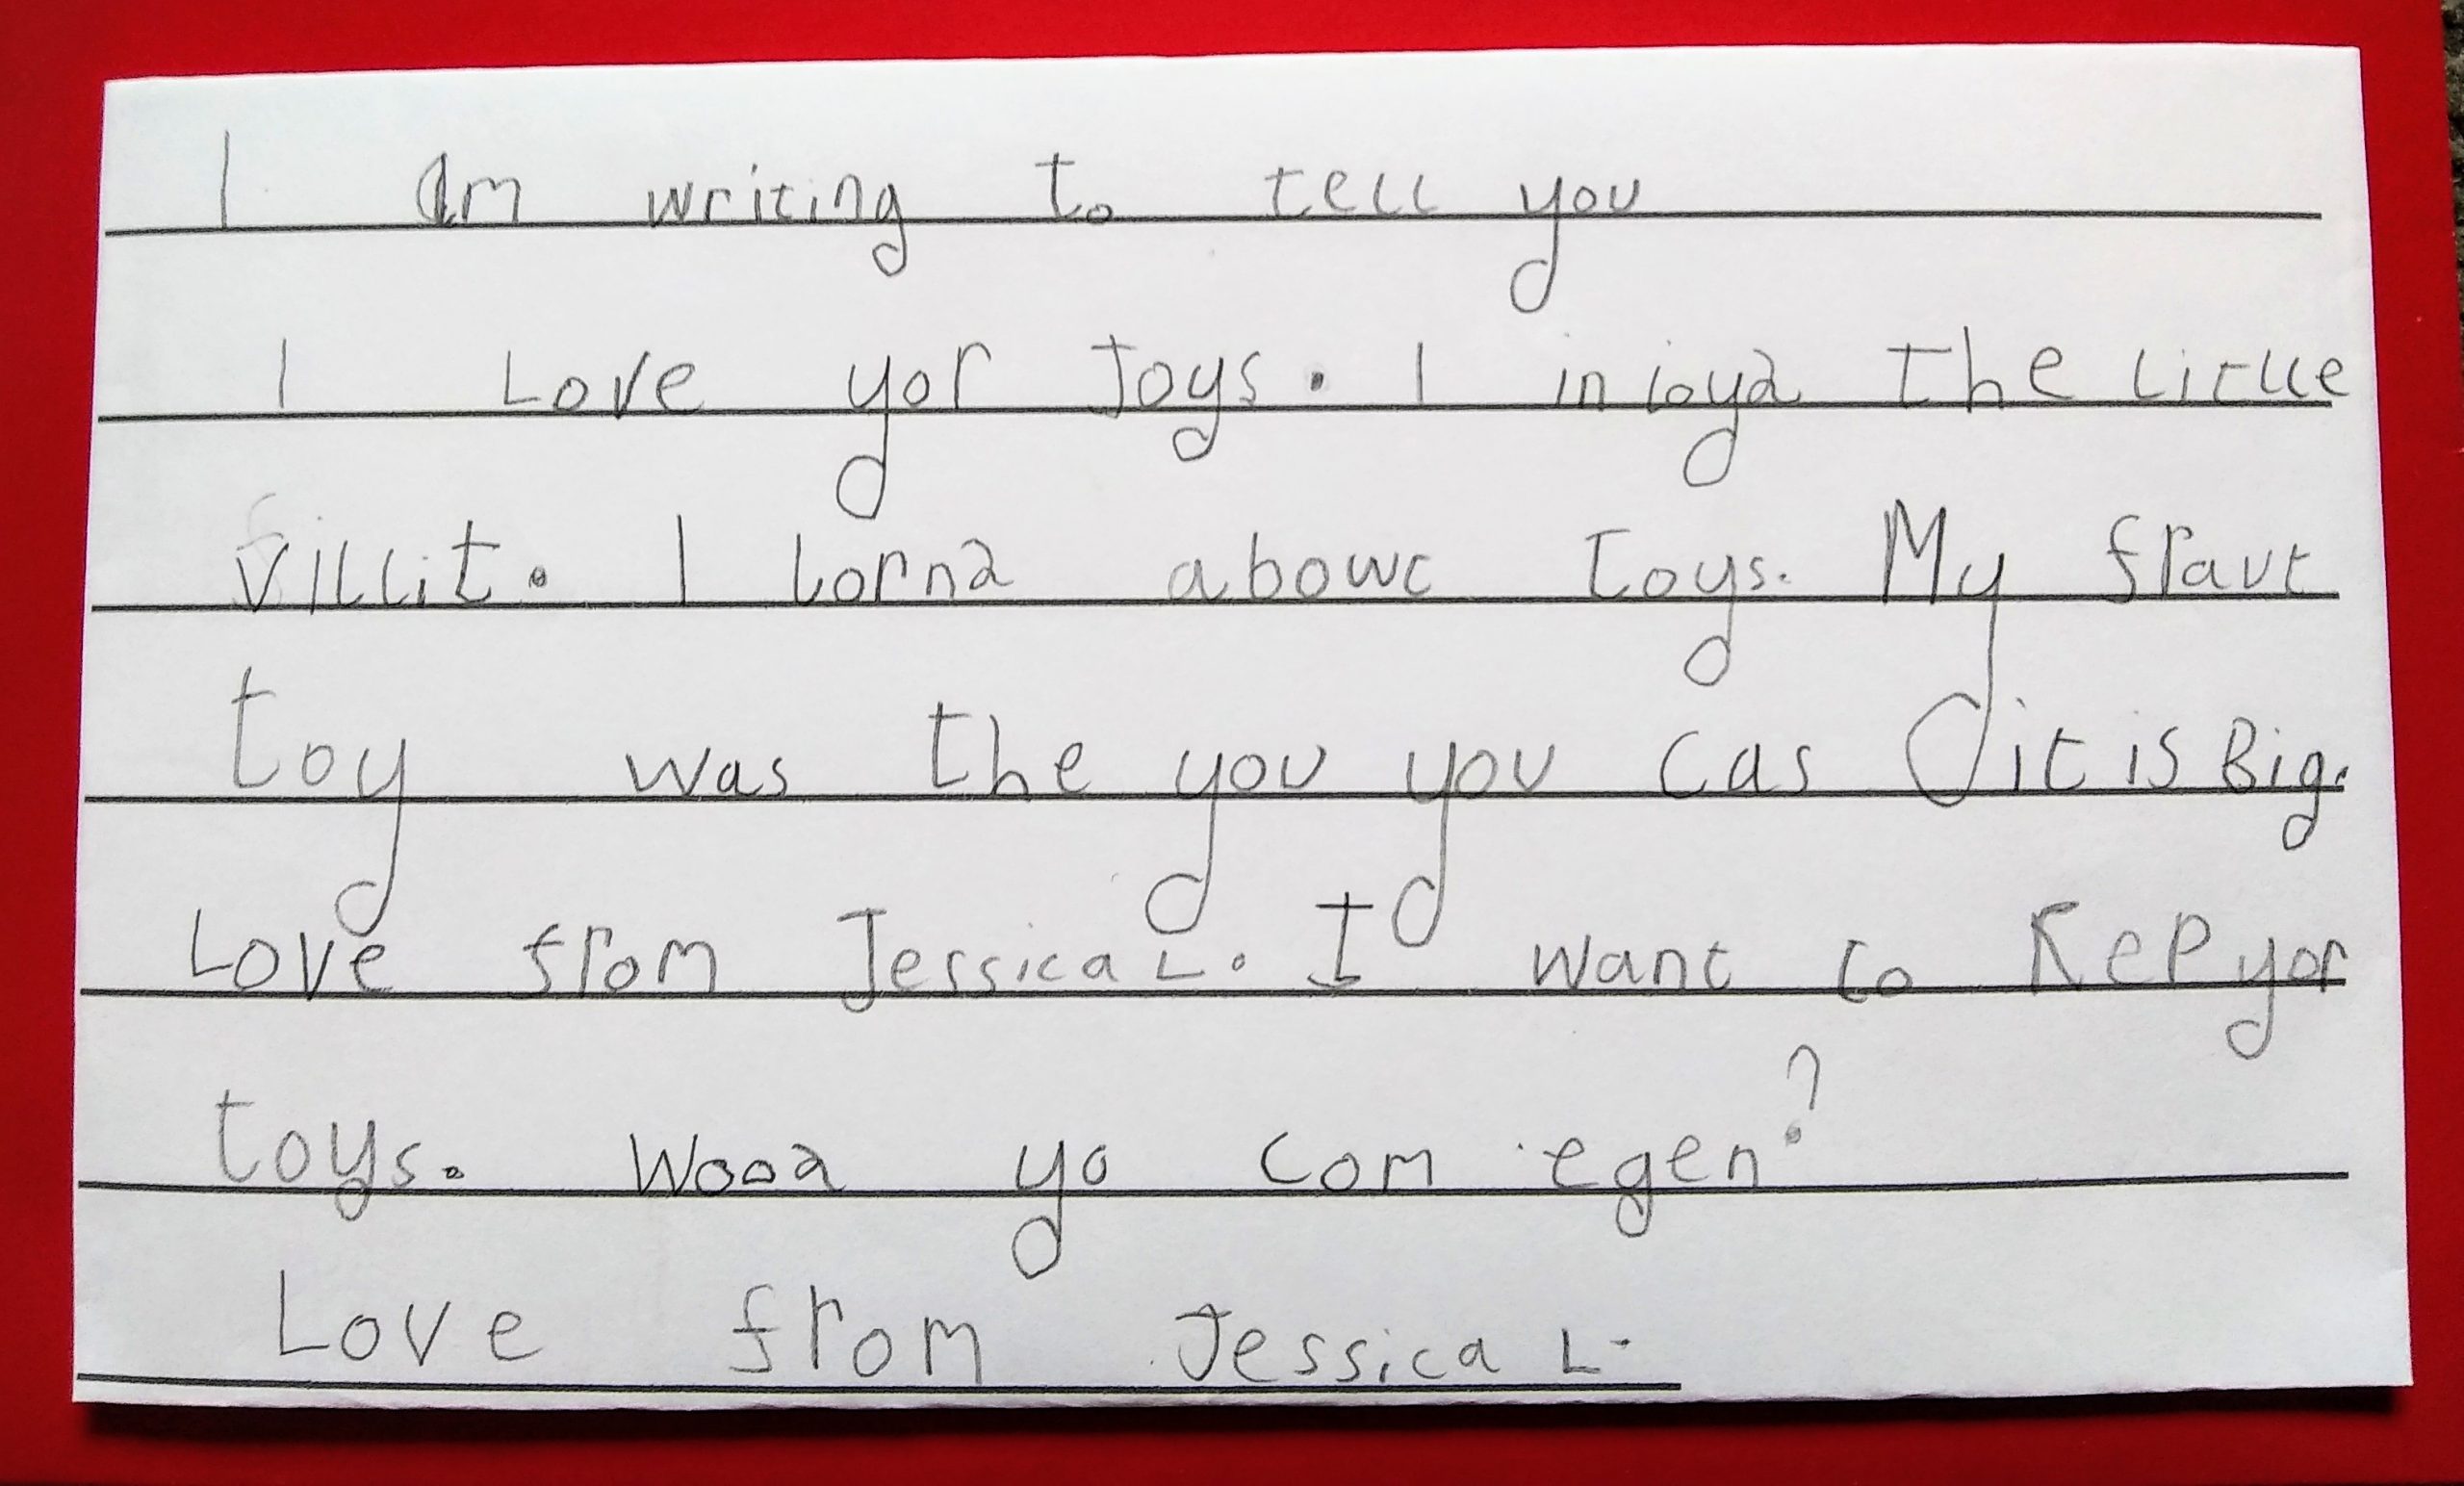 I am writing to tell you
I Love yor Toys. I inioyd the little
villit. I lornd abowt toys. My fravt
toy was the you you cas it is Big.
Love from Jessica L. I want to Kep yor
toys. Wood yo com egen?
Love from Jessica L.